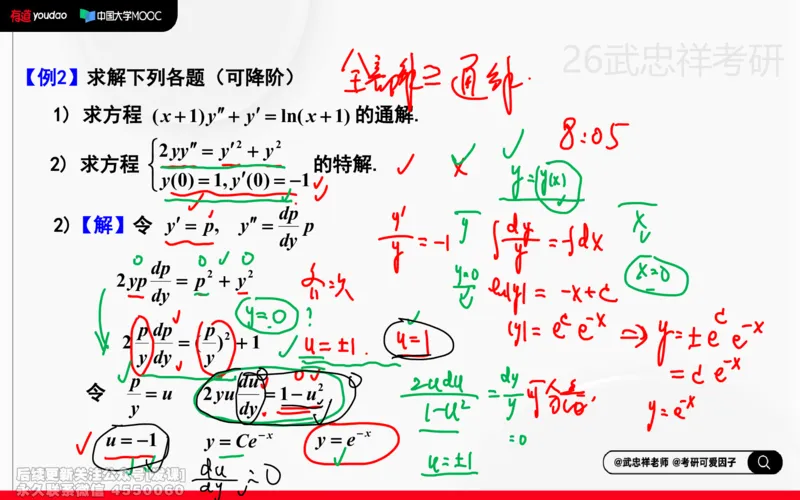 有道 youdao 中国大学MOOC
26武忠祥考研
【例2】求解下列各题（可降阶）
全部解 ≥ 通解.
1) 求方程 (x+1)y″ + y′ = ln(x+1) 的通解.
8:05
2) 求方程 { 2yy″ = y′² + y²
y(0) = 1, y′(0) = −1 的特解.
y = y(x)
2)【解】令 y′ = p, y″ = dp/dy p
y′/y = −1
y
∫dy/y = −∫dx
x
2yp dp/dy = p² + y²
y=0
ln|y| = −x+c
x=0
y=0 ?
2 p/y dp/dy = (p/y)² + 1
u = ±1.
u=1
|y| = e^c e^−x ⇒ y = ±e^c e^−x
= c e^−x
令 p/y = u
2yu du/dy = 1 − u²
2udu/1−u² = dy/y
y = e^−x
=0
u = −1
y = Ce^−x
y = e^−x
u = ±1
du/dy = 0
@武忠祥老师 @考研可爱因子
后续更新关注公众号[爱课]
永久联系微信 4550060